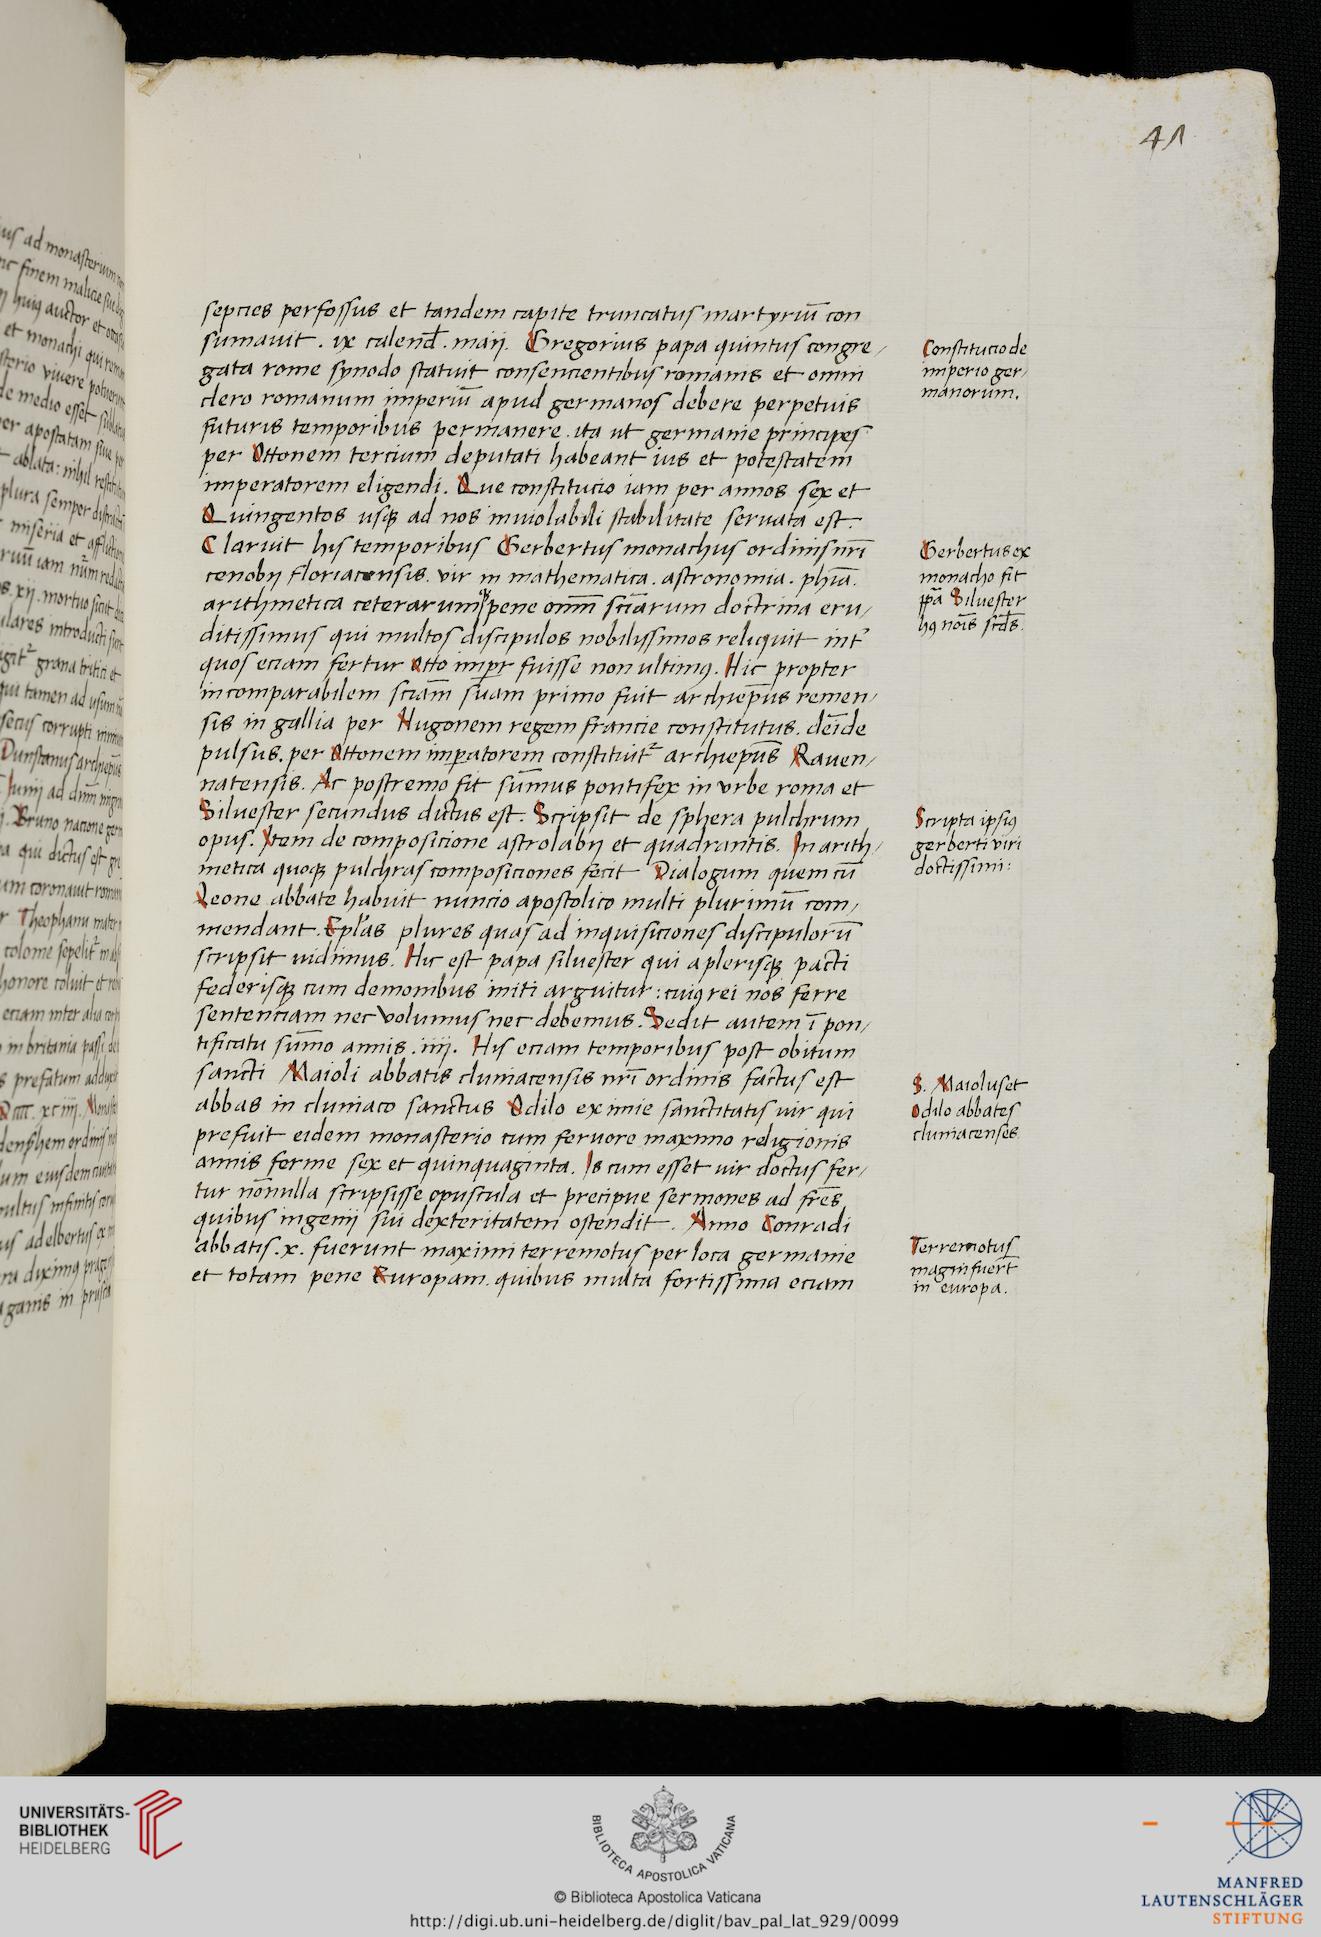 41
septies perfossus et tandem capite truncatus martyriū con
sumauit . ix calend̄ . maij . Gregorius papa quintus congre/
gata rome synodo statuit consencientibus romanis et omni
clero romanum imperiū apud germanos debere perpetuis
futuris temporibus permanere . ita ut germanie principes
per Ottonem tercium deputati habeant ius et potestatem
imperatorem eligendi . Que constitucio iam per annos sex et
Quingentos usqꝫ ad nos inuiolabili stabilitate seruata est .
Claruit his temporibus Gerbertus monachus ordinis nr̄i
cenobij floriacensis . vir in mathematica . astronomia . ph̄ia .
arithmetica ceterarumqꝫ pene omīm sciārum doctrina eru/
ditissimus qui multos discipulos nobilissimos reliquit int᷒
quos eciam fertur otto imp̄r fuisse non ultimꝯ . Hic propter
incomparabilem sciām suam primo fuit archiep̄us remen/
sis in gallia per Hugonem regem francie constitutus . deīde
pulsus . per Ottonem imp̄atorem constituit᷒ archiep̄us Rauen/
natensis . Ac postremo fit sum̄us pontifex in vrbe roma et
Siluester secundus dictus est . Scripsit de sphera pulchrum
opus . Item de composicione astrolabij et quadrantis . In arith/
metica quoqꝫ pulchras composiciones fecit Dialogum quem cū
Leone abbate habuit nuncio apostolico multi plurimū com/
mendant . Epl̄as plures quas ad inquisiciones discipulorū
scripsit uidimus . Hic est papa siluester qui a plerisqꝫ pacti
federisqꝫ cum demonibus initi arguitur : cuiꝯ rei nos ferre
sentenciam nec volumus nec debemus . Sedit autem ī pon/
tificatu sum̄o annis . iiij . His eciam temporibus post obitum
sancti Maioli abbatis cluniacensis nr̄i ordinis factus est
abbas in cluniaco sanctus Odilo eximie sanctitatis uir qui
prefuit eidem monasterio cum feruore maximo religionis
annis ferme sex et quinquaginta . Is cum esset uir doctus fer/
tur nōnulla scripsisse opuscula et precipue sermones ad fr̄es
quibus ingenij sui dexteritatem ostendit . Anno Conradi
abbatis . x . fuerunt maximi terremotus per loca germanie
et totam pene Europam . quibus multa fortissima eciam
Constitucio de
imperio ger/
manorum .
Gerbertus ex
monacho fit
pp̄a Siluester
hꝯ nōis scd̄s .
Scripta ipsiꝯ
gerberti viri
doctissimi :
S . Maiolus et
Odilo abbates
cluniacenses
Terremotus
magni fuer̄t
in europa .
UNIVERSITÄTS-
BIBLIOTHEK
HEIDELBERG
BIBLIOTECA APOSTOLICA VATICANA
© Biblioteca Apostolica Vaticana
http://digi.ub.uni-heidelberg.de/diglit/bav_pal_lat_929/0099
MANFRED
LAUTENSCHLÄGER
STIFTUNG